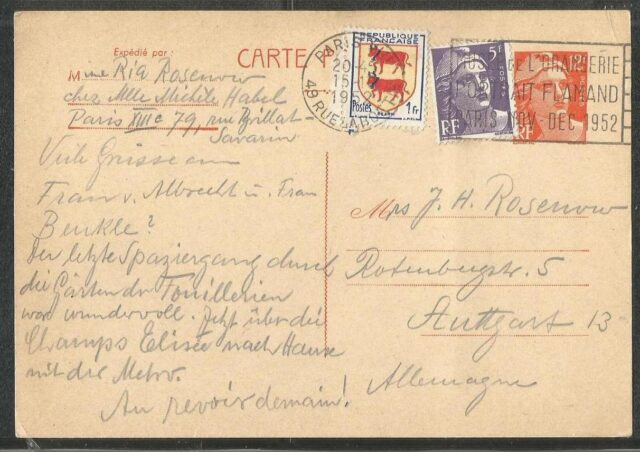 Expédié par :
CARTE
Mme Ria Rosenow
chez Mlle Michèle Habel
Paris XIIIe 79, rue Brillat-
Savarin
Viele Grüsse an
Frau v. Albrecht u. Frau
Benkle?
Der letzte Spaziergang durch
die Gärten der Touillerien
war wundervoll. Jetzt über die
Champs Elisée nach Hause
mit der Metro.
Au revoir demain!
PARIS
20
15-12
1952
49 RUE
REPUBLIQUE
FRANÇAISE
Postes 1fr
5F
POSTES
RF
12F
RF
DE L'ORANGERIE
PORTRAIT FLAMAND
PARIS NOV. DEC 1952
Mrs J. H. Rosenow
Rotenbergstr. 5
Stuttgart 13
Allemagne